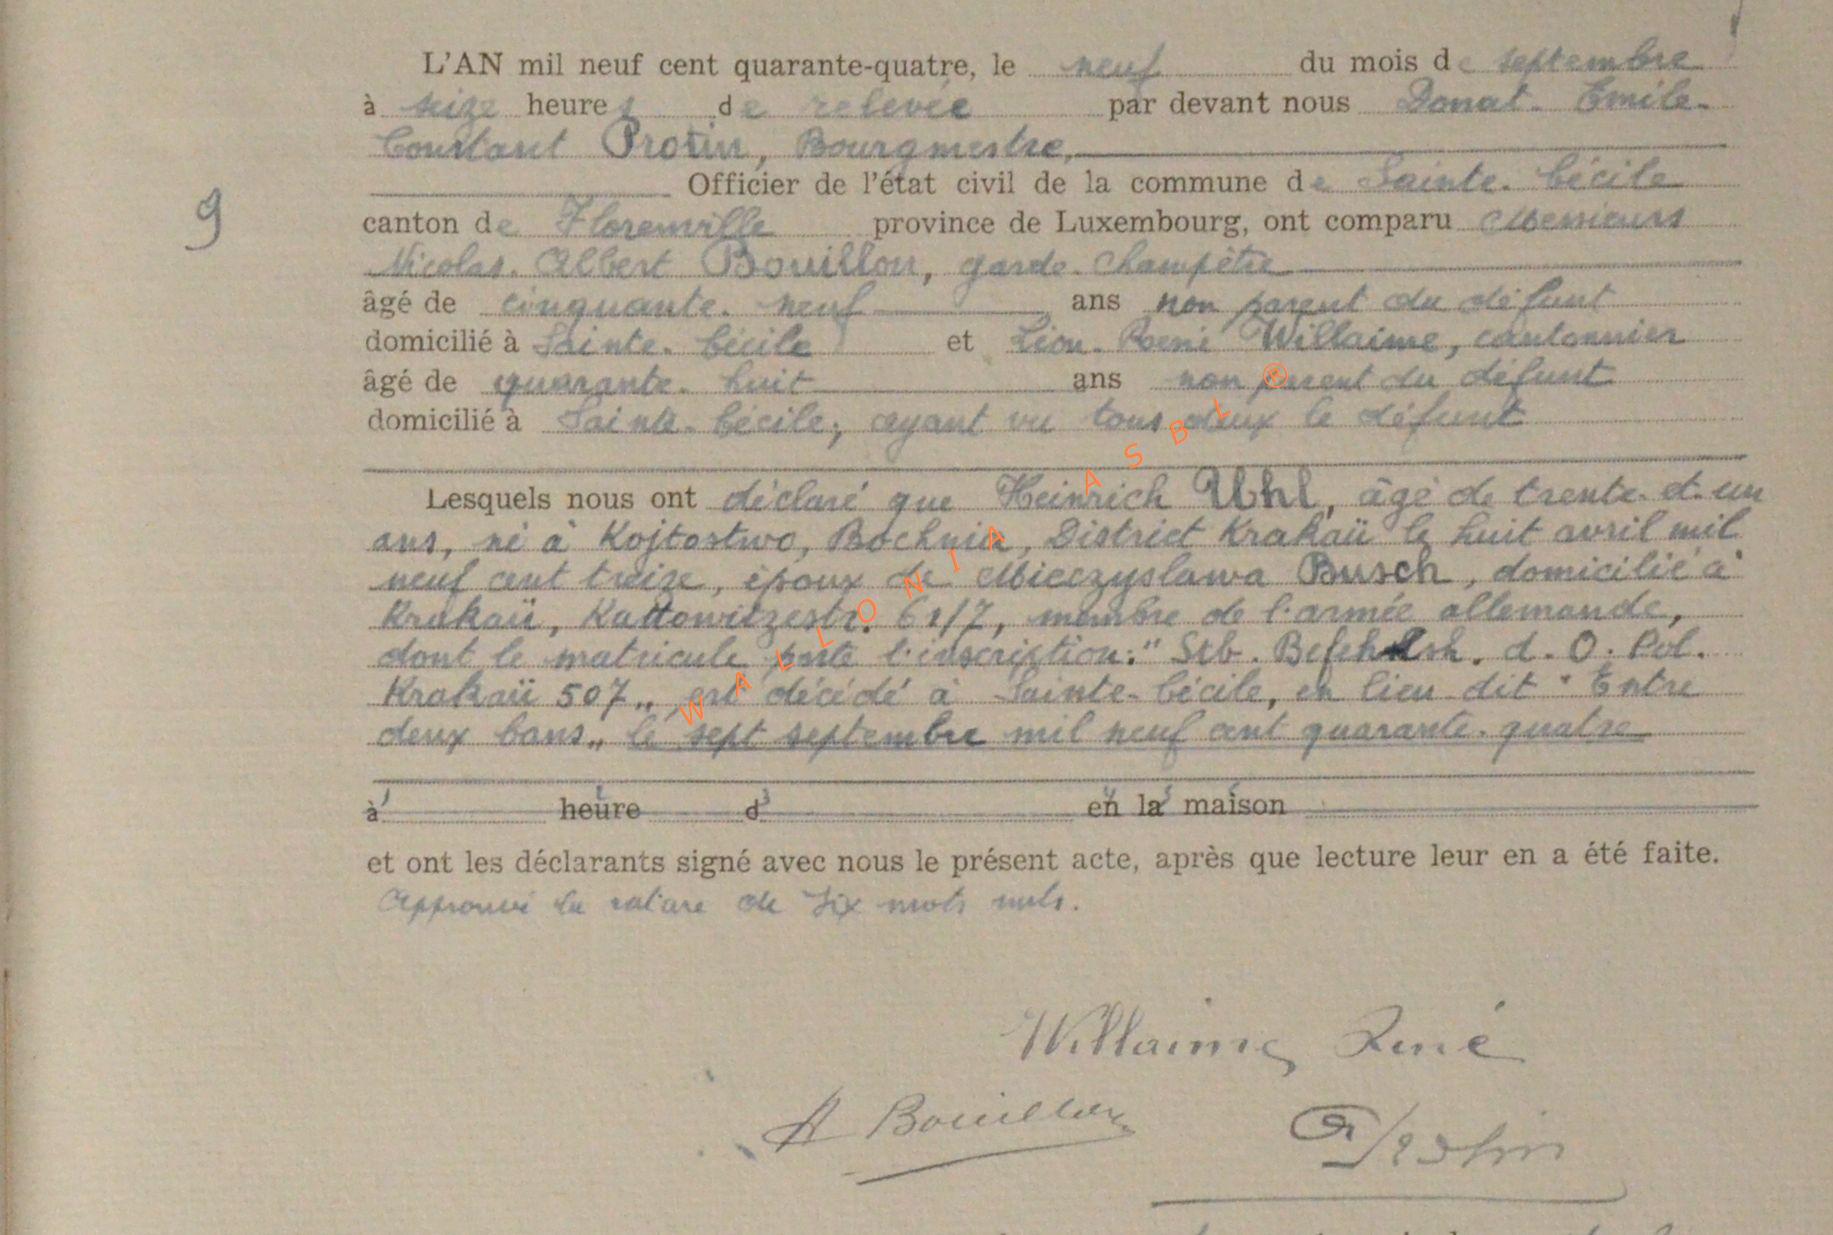 L'AN mil neuf cent quarante-quatre, le neuf du mois de septembre
à seize heures de relevée par devant nous Donat-Emile-
Constant Protin, Bourgmestre,
Officier de l'état civil de la commune de Sainte-Cécile
9
canton de Florenville province de Luxembourg, ont comparu Messieurs
Nicolas-Albert Bouillon, garde-champêtre
âgé de cinquante-neuf ans non parent du défunt
domicilié à Sainte-Cécile et Léon-René Willaime, cantonnier
âgé de quarante-huit ans non parent du défunt
domicilié à Sainte-Cécile; ayant vu tous deux le défunt
Lesquels nous ont déclaré que Heinrich Uhl, âgé de trente-et-un
ans, né à Kojtostwo, Bochnia, District Krakaü le huit avril mil
neuf cent treize, époux de Mieczyslawa Busch, domicilié à
Krakaü, Kattowitzestr. 61/7, membre de l'armée allemande,
dont le matricule porte l'inscription: "Stb. Befehlsh. d. O. Pol.
Krakaü 507„ est décédé à Sainte-Cécile, en lieu dit "Entre
deux bans„ le sept septembre mil neuf cent quarante-quatre
à heure d en la maison
et ont les déclarants signé avec nous le présent acte, après que lecture leur en a été faite.
Approuvé la rature de six mots nuls.
Willaime René
A Bouillon
Protin
WALLONIA ASBL ®